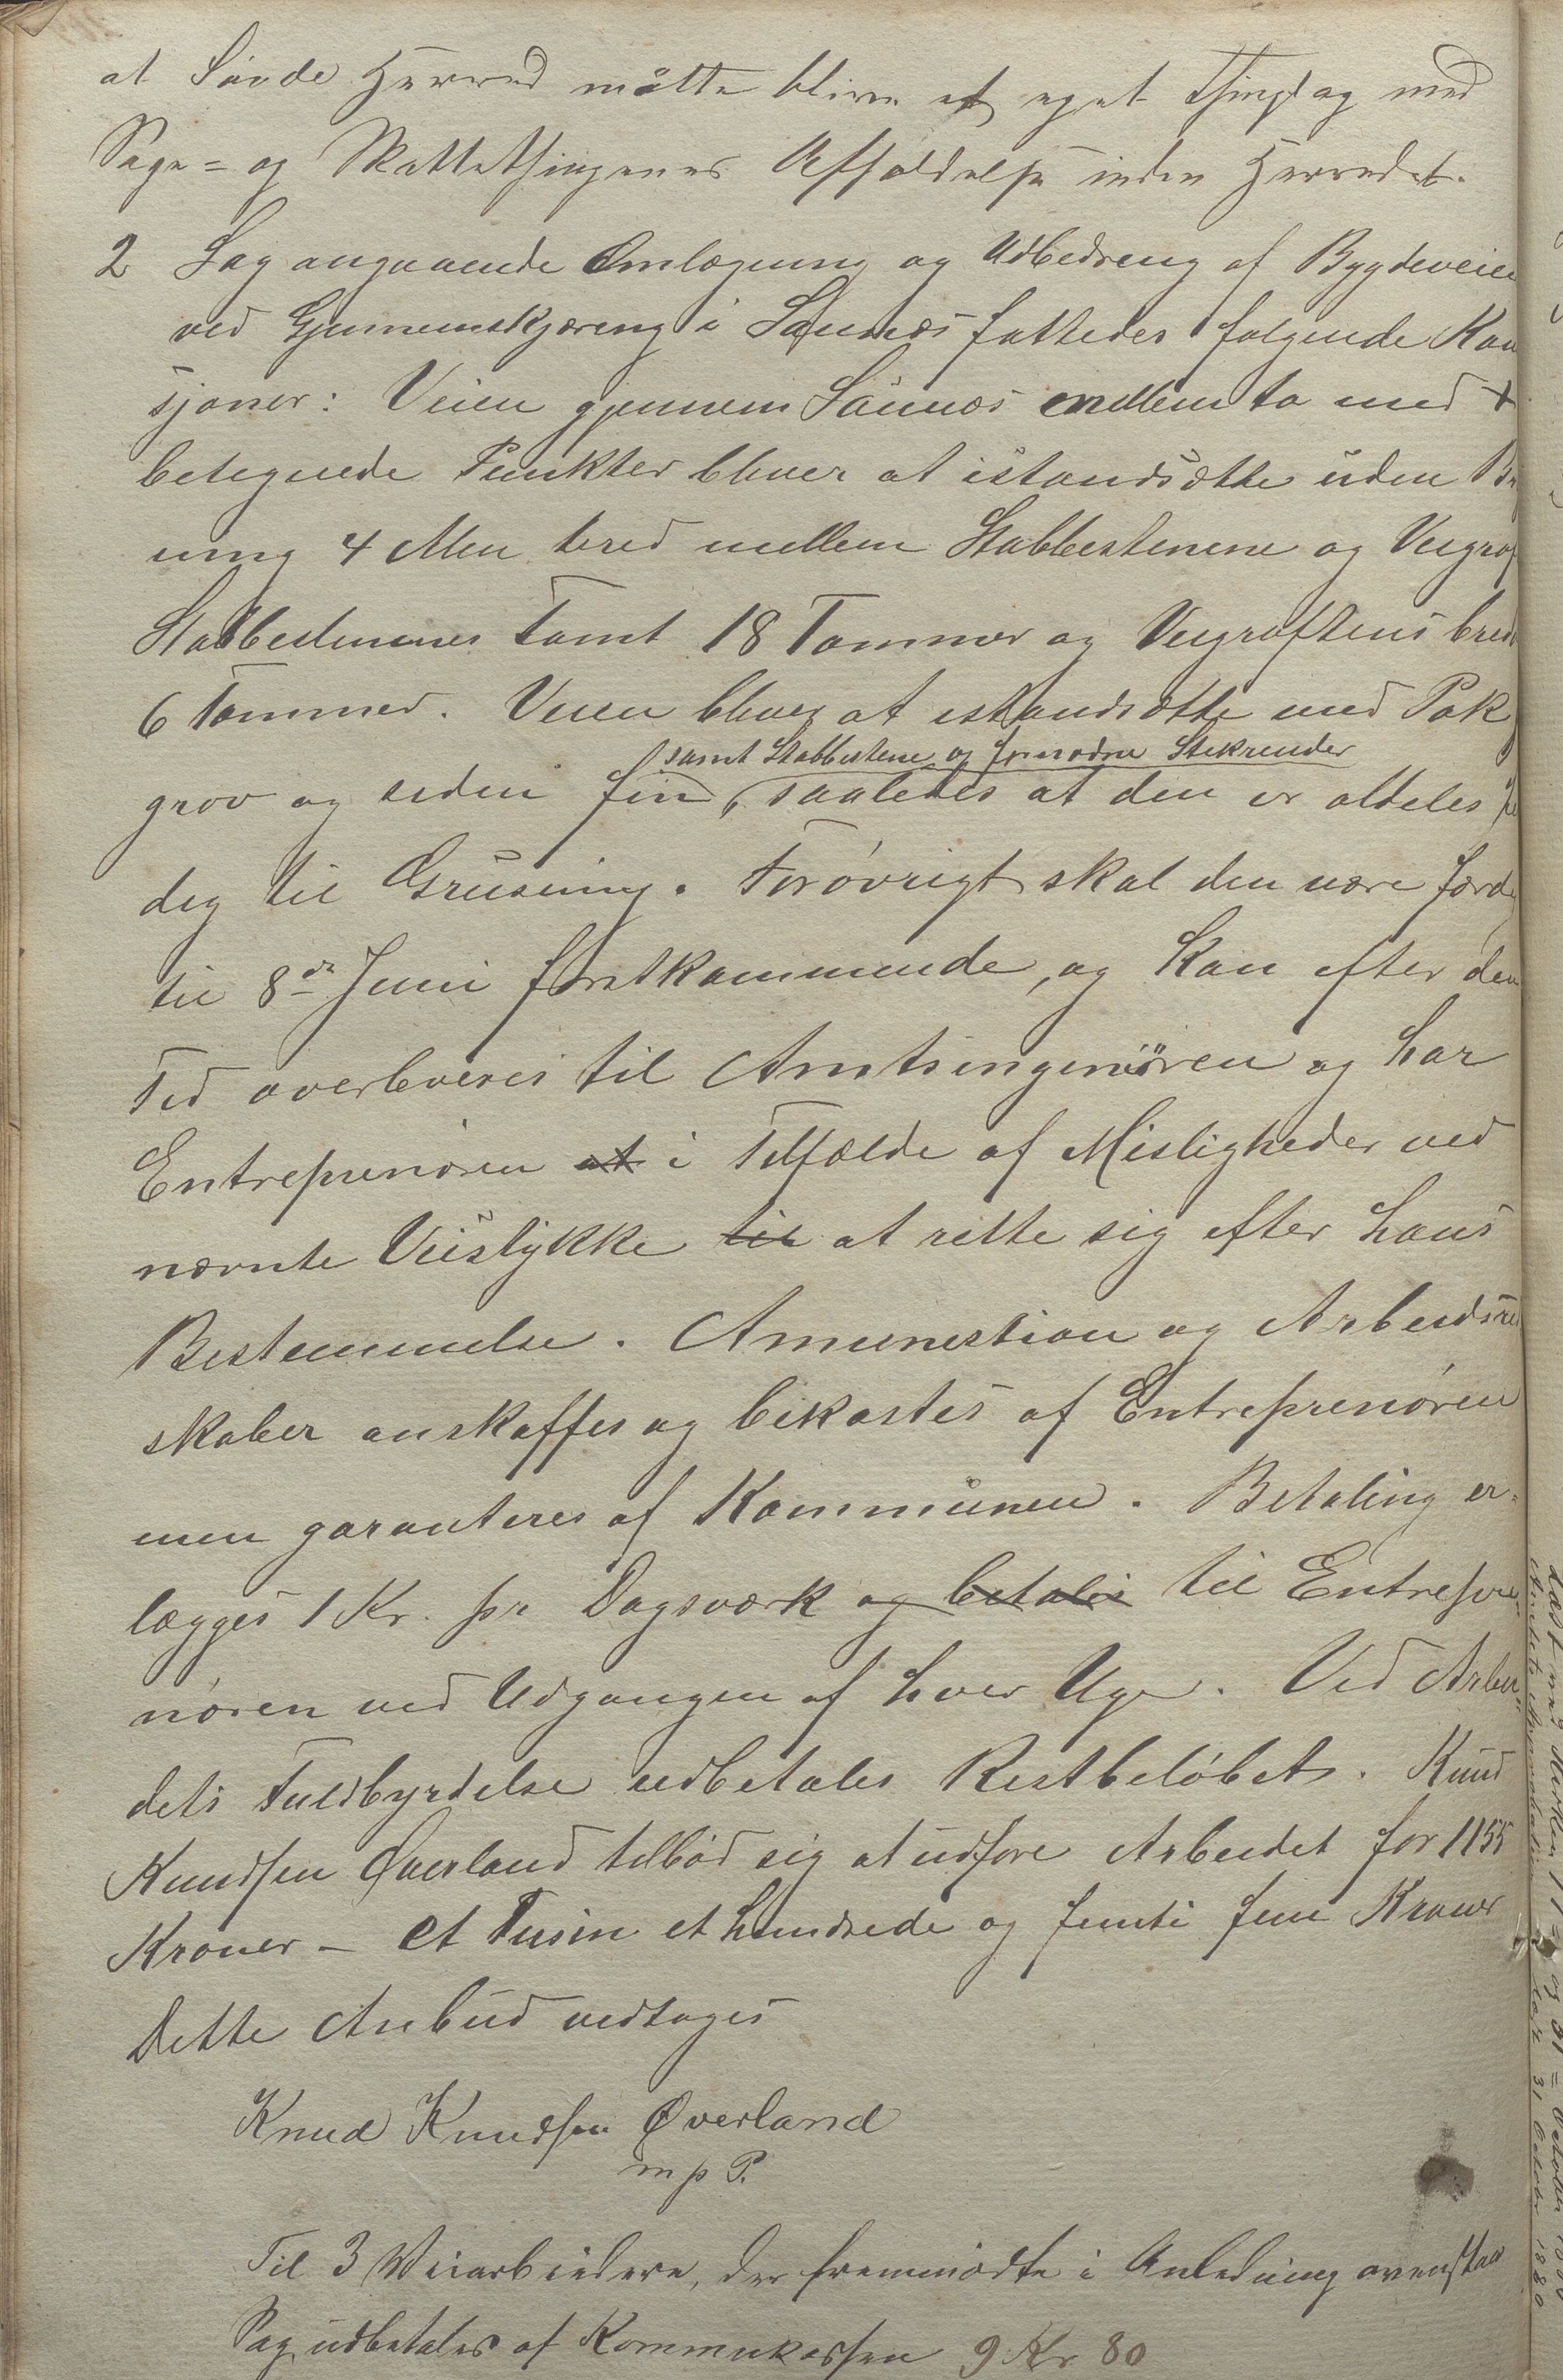 at Sävde Herred måtte blive et eget Thinglag med
Sage= og Skattethingenes Afholdelse inden Herredet.
2 Sag angaaende Omlægning og Udbedring af Bygdeveien
ved Gjennemskjæring i Sannæs fattedes følgende Kon
sjoner: Veien gjennem Sannæs mellem to med +
betegnede Punkter bliver at istandsætte uden
ning 4 Alen bred mellem Stabbestenene og Veigrøf
Stabbestenenes Tomt 18 Tommer og Veigrøftens bred
6 Tommer. Veien bliver at istandsætte med Puk
samt Stabbestene og fornødne Stikrender
grov og siden fin, saaledes at den er aldeles
dig til Grusning. Forøvrigt skal den være færdig
til 8de Juni førstkommende, og kan efter den
Tid overleveres til Amtsingeniøren og har
Entreprenøren at i Tilfælde af Misligheder ved
nævnte Veistykke til at rette sig efter hans
Bestemmelse. Amunestion og Arbeidsred
skaber anskaffes og bekostes af Entreprenøren
men garanteres af Kommunen. Betaling er=
lægges 1 Kr. pr Dagsværk og betales til Entrepre=
nøren ved Udgangen af hver Uge. Ved Arbei=
dets Fuldbyrdelse udbetales Restbeløbet. Knud
Knudsen Øverland tilbød sig at udføre Arbeidet for 1155
Kroner – et Tusin et hundrede og femti fem Kroner
Dette Anbud vedtoges
Knud Knudsen Øverland
m p P.
Til 3 Veiarbeidere, der fremmødte i Anledning ovenstaa
Sag udbetales af Kommunekassen 9 Kr 80